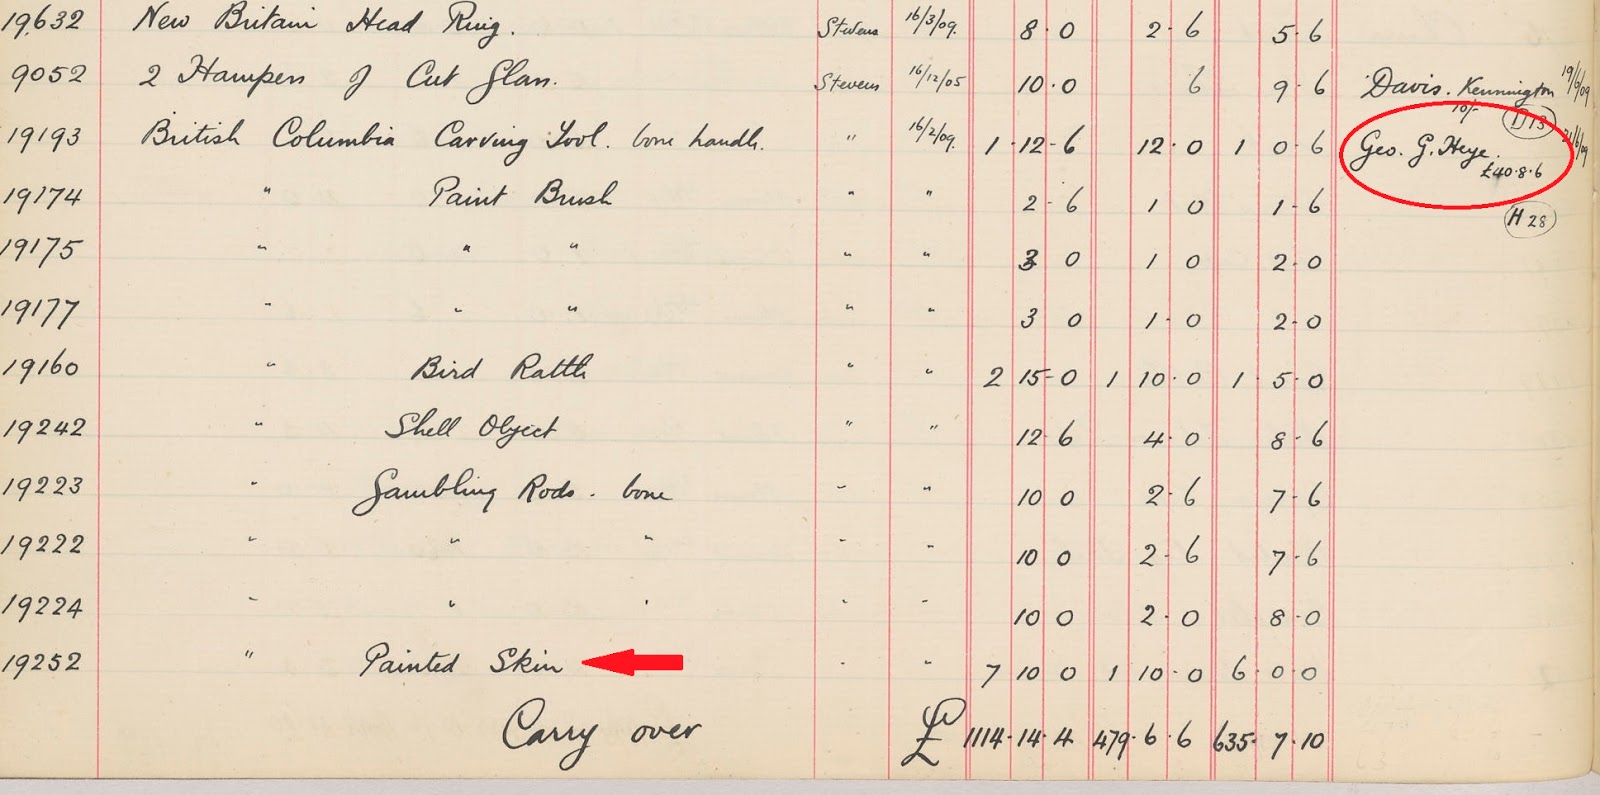 19,632 New Britain Head Ring. Stevens 16/3/09. 8·0 2·6 5·6
9052 2 Hampers of Cut Glass. Stevens 16/12/05 10·0 6 9·6 Davis. Kennington 19/6/09
10/- D13
19193 British Columbia Carving Tool. bone handle. " 16/2/09. 1·12·6 12·0 1 0·6 Geo. G. Heye. 21/6/09
£40·8·6
19174 " Paint Brush " " 2·6 1 0 1·6
H 28
19175 " " " " " 3 0 1 0 2·0
19177 " " " " " 3 0 1·0 2·0
19160 " Bird Rattle " " 2 15-0 1 10·0 1 5·0
19242 " Shell Object " " 12 6 4·0 8·6
19223 " Gambling Rods. bone " " 10 0 2·6 7·6
19222 " " " " " 10 0 2·6 7·6
19224 " " " " " 10 0 2·0 8·0
19252 " Painted Skin " " 7 10 0 1 10·0 6·0·0
Carry over £ 1114·14·4 479·6·6 635·7·10